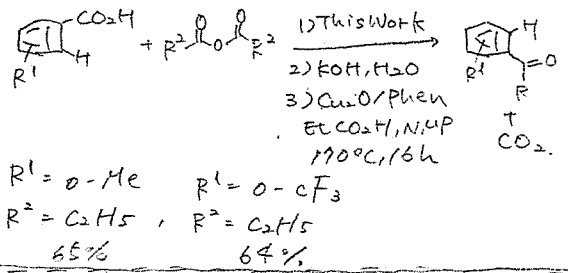 CO2H
H
R1
+
R2 O O O R2
1) This Work
2) KOH, H2O
3) Cu2O/Phen
EtCO2H, NMP
170°C, 16h
H
R1
O
R
+
CO2.
R1 = o-Me
R2 = C2H5,
65%
R1 = o-CF3
R2 = C2H5
64%